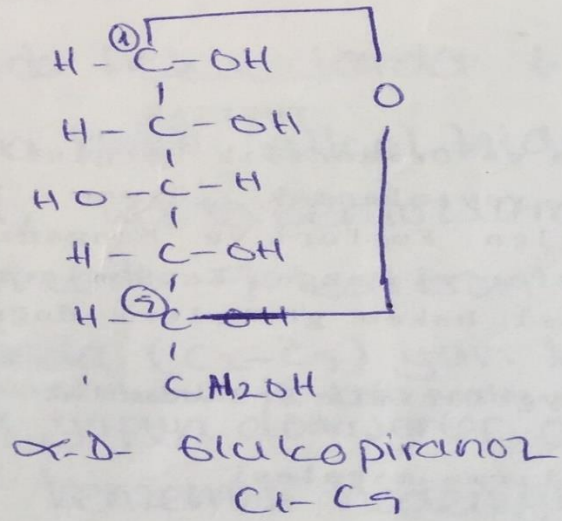 ① H - C - OH
O
H - C - OH
HO - C - H
H - C - OH
⑤ H - C - OH
CH2OH
α-D- Glukopiranoz
C1-C5